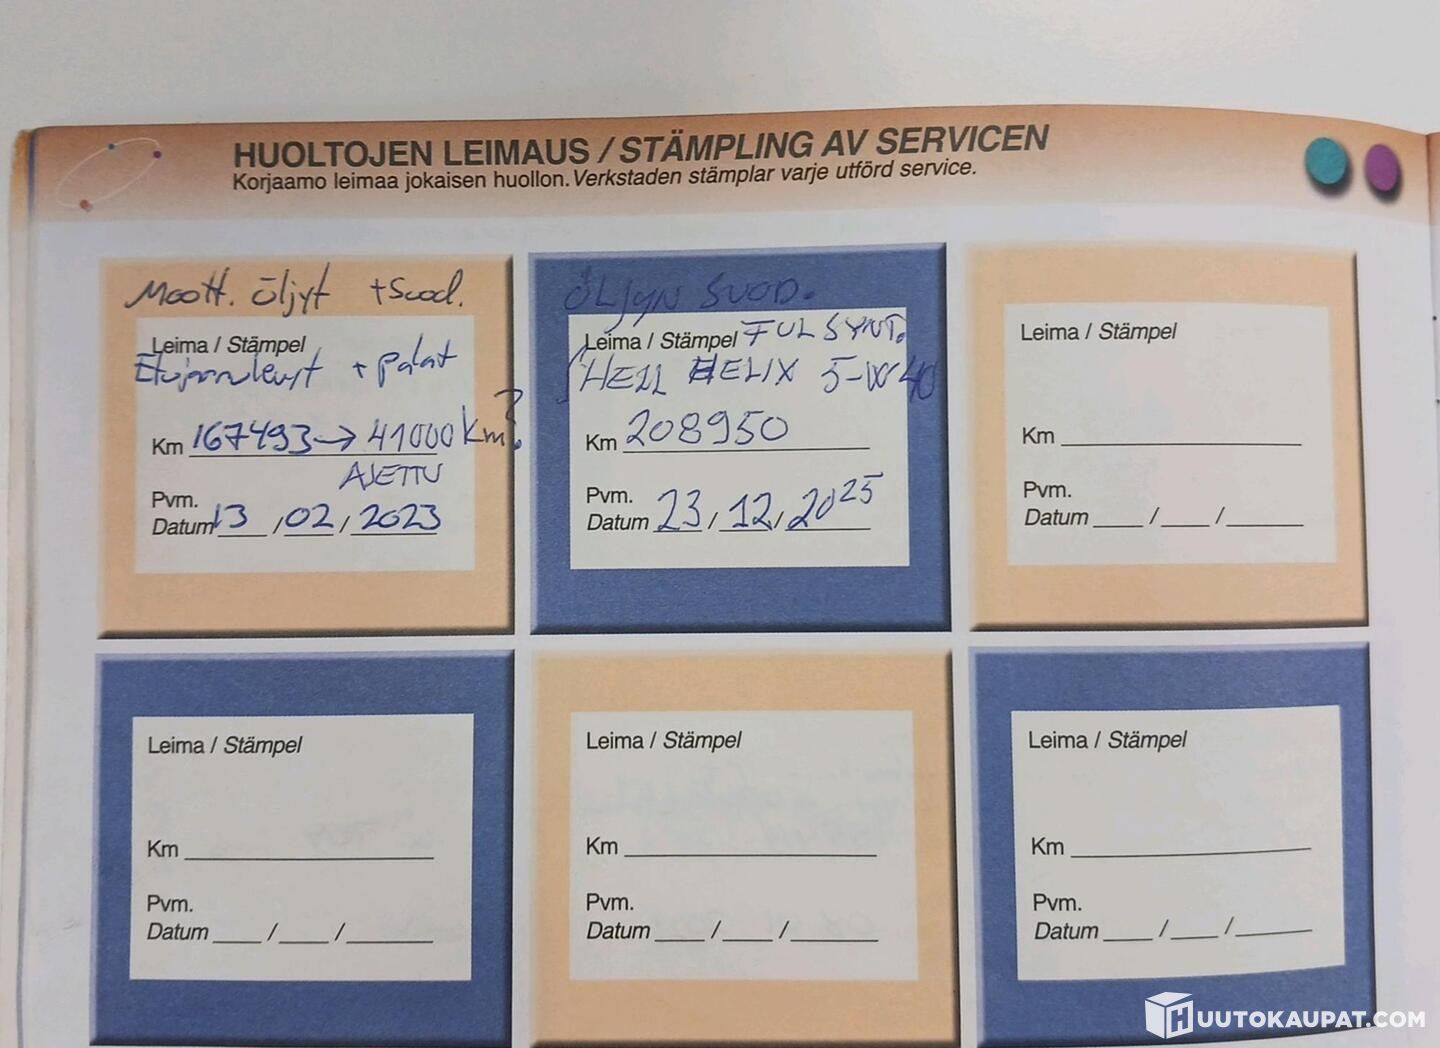 HUOLTOJEN LEIMAUS / STÄMPLING AV SERVICEN
Korjaamo leimaa jokaisen huollon. Verkstaden stämplar varje utförd service.
Moott. öljyt + Suod.
Leima / Stämpel
Etujarrulevyt + palat
Km 167493 → 41000 km?
AJETTU
Pvm.
Datum 13 / 02 / 2023
ÖLJYN SUOD.
Leima / Stämpel FUL SYNT.
SHELL HELIX 5-W 40
Km 208950
Pvm.
Datum 23 / 12 / 2025
Leima / Stämpel
Km
Pvm.
Datum / /
Leima / Stämpel
Km
Pvm.
Datum / /
Leima / Stämpel
Km
Pvm.
Datum / /
Leima / Stämpel
Km
Pvm.
Datum / /
HUUTOKAUPAT.COM